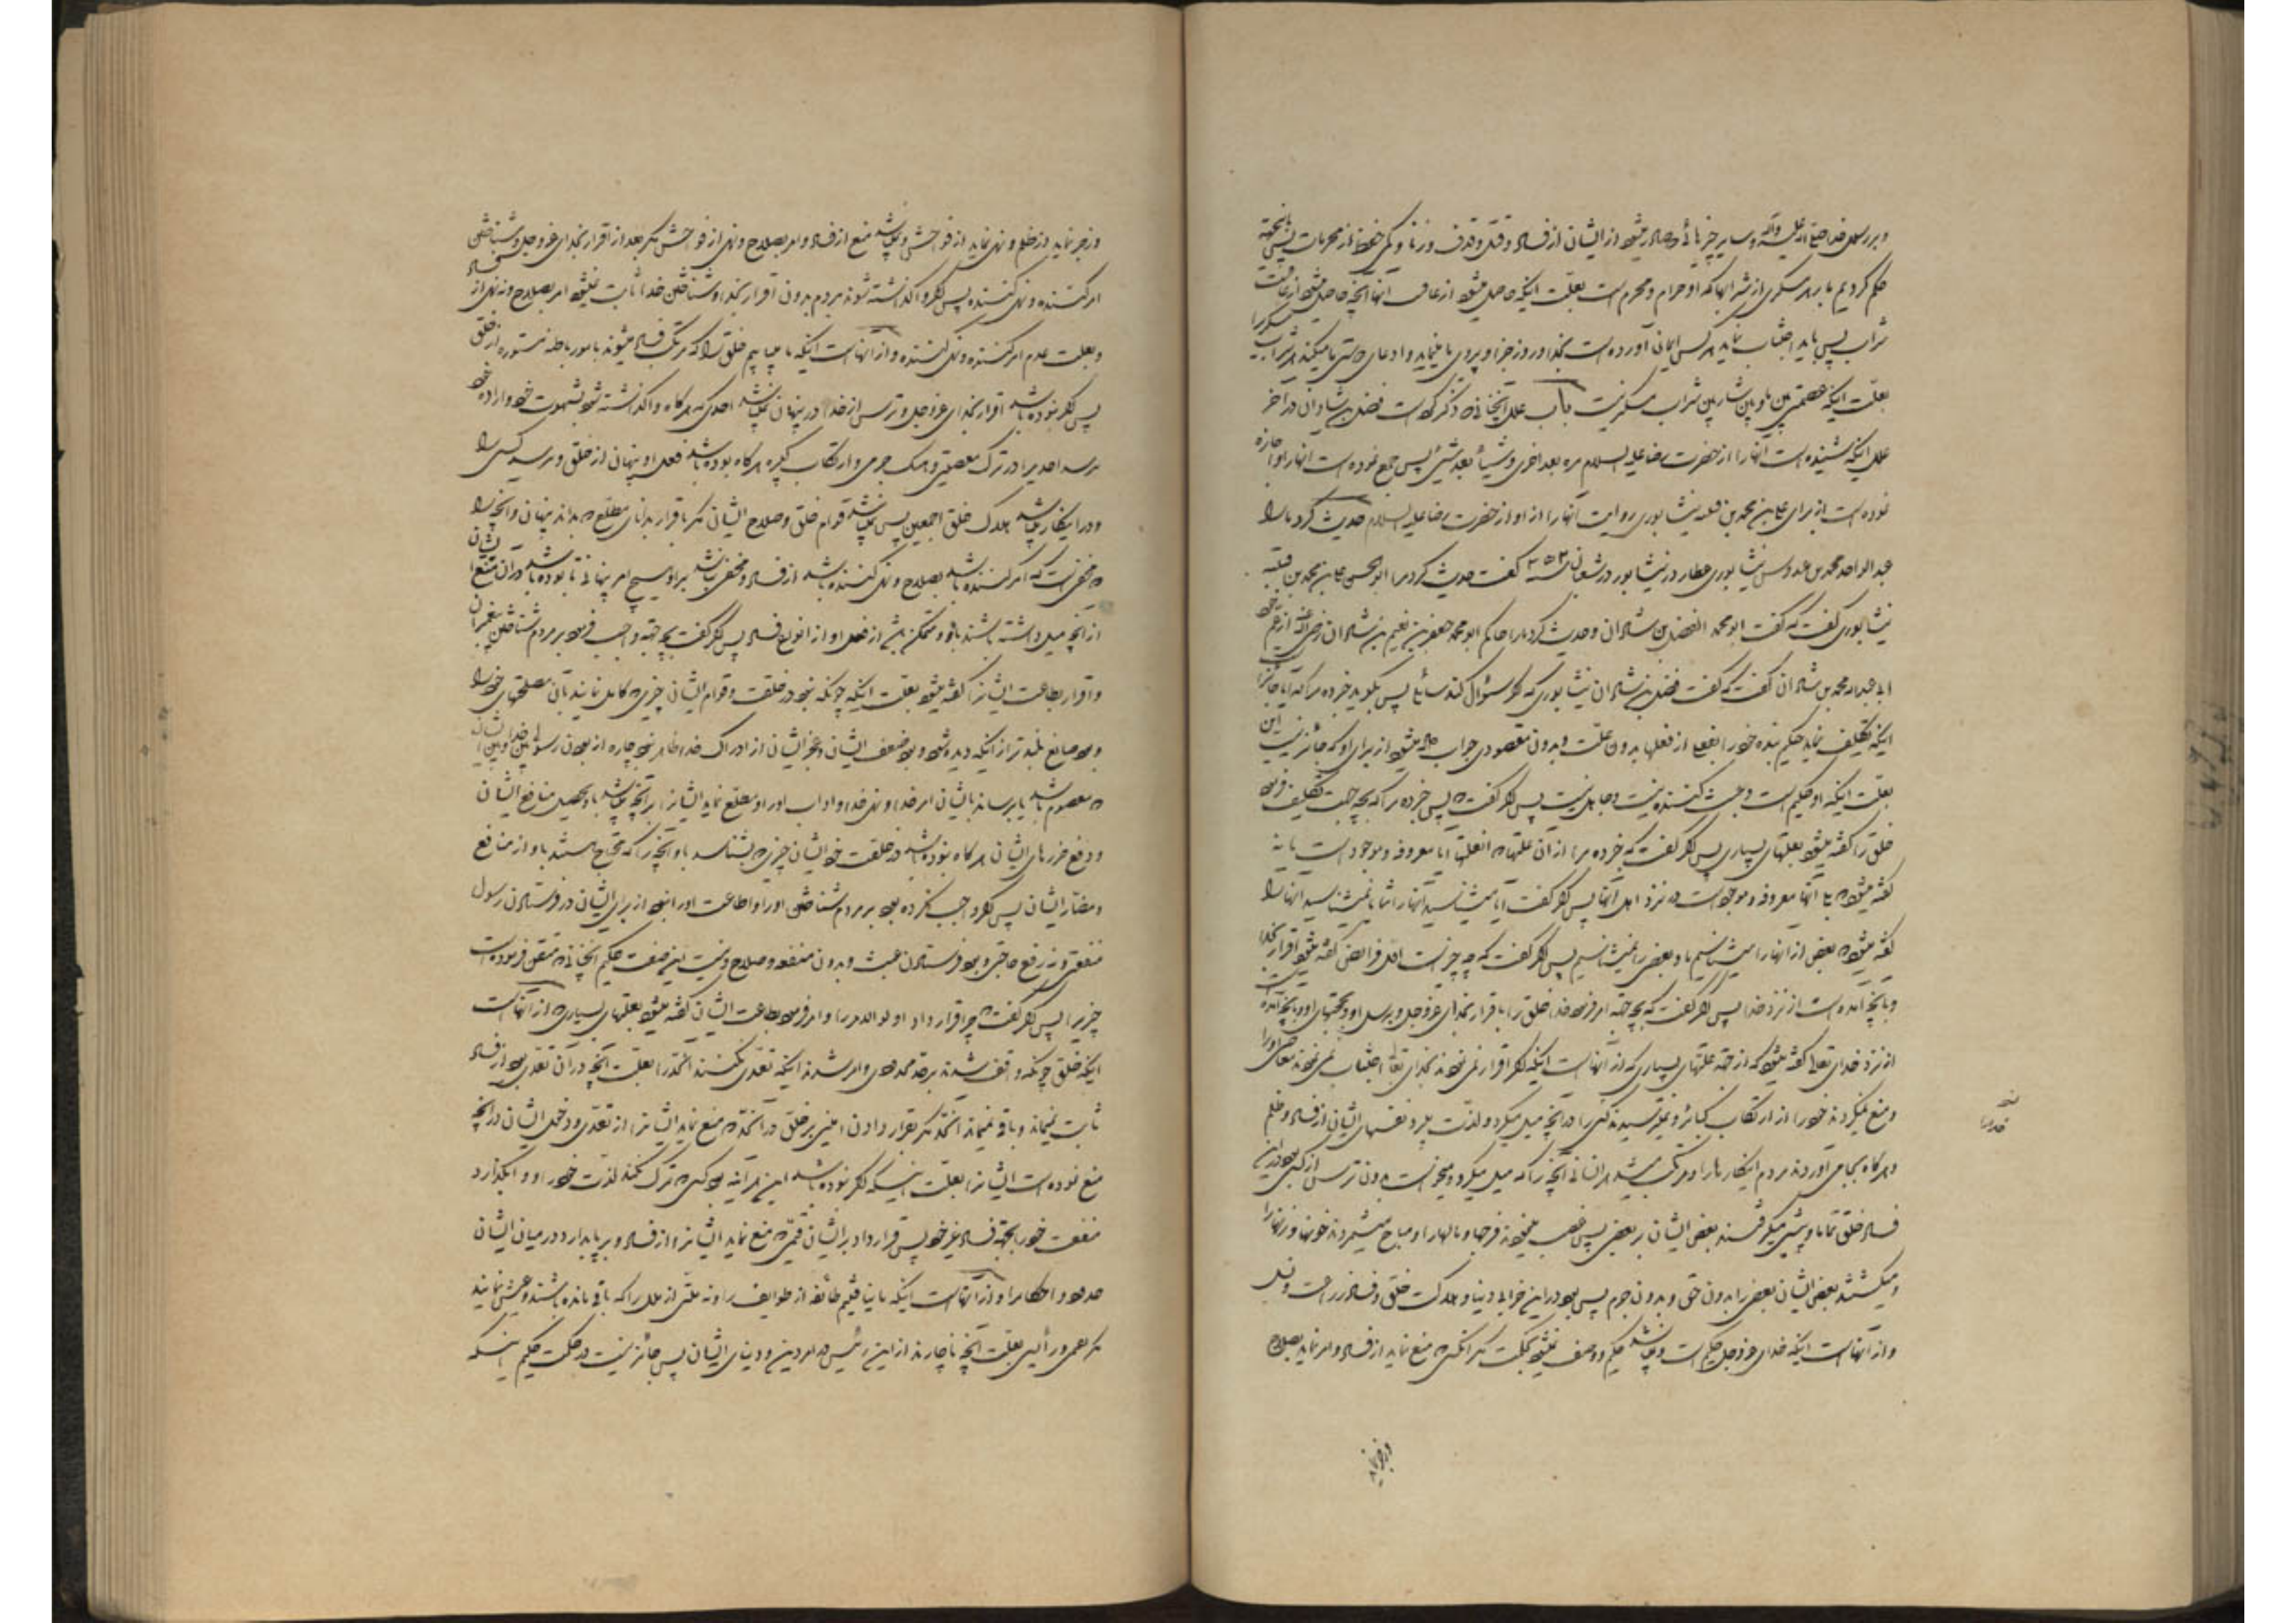 و بر رسول خدا صلی الله علیه و آله و سایر چیزهائی که صادر میشود از ایشان از فساد و قتل و قذف و زنا و کمی حفظ از محرمات پس باینجهة
حکم کردیم ما بر هر مسکری از شرابها که او حرام و محرم است بعلت اینکه حاصل میشود از عاقبت آنها آنچه حاصل میشود از عاقبت
شراب پس باید اجتناب نماید هر کس ایمان آورده است بخدا و روز جزا و پیروی ما مینماید و ادعای دوستی ما میکند هر شراب مسکر را
بعلت اینکه عصمتی بین ما و بین شاربین شراب مسکر نیست باب علل آنچنانی که ذکر کرده است فضل بن شاذان در آخر
علل اینکه شنیده است آنها را از حضرت رضا علیه السلام مرة بعد اخری و شیئا بعد شیئ پس جمع نموده است آنها را و اجازه
نموده است از برای علی بن محمد بن قتیبه نیشابوری روایت آنها را از او از حضرت رضا علیه السلام حدیث کرد ما را
عبد الواحد محمد بن عبدوس نیشابوری عطار در نیشابور در شعبان سنه ۳۵۲ گفت حدیث کرد مرا ابو الحسن علی بن محمد بن قتیبه
نیشابوری گفت که گفت ابو محمد الفضل بن شاذان و حدیث کرد ما را حاکم ابو محمد جعفر بن نعیم بن شاذان رضی الله عنه از عم خود
ابی عبد الله محمد بن شاذان گفت که گفت فضل بن شاذان نیشابوری که اگر سؤال کند سائلی پس بگوید خبر ده مرا که آیا جائز است
اینکه تکلیف نماید حکیم بنده خود را بفعلی از فعلها بدون علت و بدون مقصودی جواب داده میشود از برای او که جائز نیست این
بعلت اینکه او حکیم است و عبث کننده نیست و جاهل نیست پس اگر گفت که پس خبر ده مرا که بچه جهت تکلیف فرمود
خلق را گفته میشود بعلتهای بسیاری پس اگر گفت که خبر ده مرا از آن علتها که آنعلتها آیا معروفه و موجود است یا نه
گفته میشود که بلی آنها معروفه و موجود است در نزد اهل آنها پس اگر گفت آیا میشناسید آنها را شما یا نمیشناسید آنها را
گفته میشود که بعض از آنها را میشناسیم ما و بعضی را نمیشناسیم پس اگر گفت که چه چیز است اول فرائض گفته میشود اقرار بخدا
و بآنچه آمده است از نزد خدا پس اگر گفت که بچه جهة امر فرمود خدا خلق را باقرار بخدای عز و جل و برسل او و حجتهای او و بآنچه آمده
از نزد خدای تعالی گفته میشود که از جهة علتهای بسیاری که از آنهاست اینکه اگر اقرار نمی نمودند بخدای تعالی اجتناب نمی نمودند معاصی او را
و منع نمیکردند خود را از ارتکاب کبائر و نمیترسیدند کسی را در آنچه میل میکرد و لذت میبرد نفسهای ایشان از فساد و ظلم
و هر گاه بجا می آوردند مردم اینکارها را و مرتکب میشد هر انسانی آنچه را که میل میکرد و میخواست بدون ترسی از کسی بود در این
فساد خلق تماما و پیشی میگرفتند بعض ایشان بر بعضی پس غصب مینمودند فرجها و مالها را و مباح میشمردند خونها و زنها را
و میکشتند بعض ایشان بعضی را بدون حق و بدون جرم پس بود در این خرابی دنیا و هلاکت خلق و فساد زراعت و نسل
و از آنهاست اینکه خدای عز و جل حکیم است و نمیباشد حکیم و وصف نمیشود بحکمت مگر آنکسی که منع نماید از فساد و امر نماید بصلاح
و زجر نماید
و زجر نماید از ظلم و نهی نماید از فواحش و نمیباشد منع از فساد و امر بصلاح و نهی از فواحش مگر بعد از اقرار بخدای عز و جل و شناختن
امر کننده و نهی کننده پس اگر واگذاشته شوند مردم بدون اقرار بخدا و شناختن خدا ثابت نمیشود امر بصلاح و نه نهی از فساد
و بعلت عدم امر کننده و نهی کننده و از آنهاست اینکه ما مییابیم خلق را که مرتکب فساد میشوند بامور باطنه مستوره از خلق
پس اگر نبوده باشد اقرار بخدای عز و جل و ترس از خدا در پنهان نمیباشد احدی که هر گاه واگذاشته شود بشهوت خود و اراده خود
بترسد احدی را در ترک معصیتی و هتک حرمی و ارتکاب کبیره هر گاه بوده باشد فعل او پنهانی از خلق و نرسد کسی را
و در اینکار میباشد هلاک خلق اجمعین پس نمیباشد قوام خلق و صلاح ایشان مگر باقرار بدانای مطلع که بداند پنهان و آنچه را
که مخفی است که امر کننده باشد بصلاح و نهی کننده باشد از فساد و مخفی نباشد بر او هیچ امر پنهانی تا بوده باشد در آن منع ایشان
از آنچه میل داشته باشند باو و متمکن باشد از فعل او از انواع فساد پس اگر گفت بچه جهة واجب فرمود بر مردم شناختن پیغمبران
و اقرار بطاعت ایشان را گفته میشود بعلت اینکه چونکه نبود در خلقت و قوام ایشان چیزی که کامل نمایند بآن مصلحتهای خود را
و بود صانع بلند تر از اینکه دیده شود و بود ضعف ایشان و عجز ایشان از ادراک خدا ظاهر نبود چاره از بودن رسولی بین خدا و بین ایشان
که معصوم باشد تا برساند بایشان امر خدا و نهی خدا و آداب او را و مطلع نماید ایشان را بر آنچه میباشد باو تحصیل منافع ایشان
و دفع ضررهای ایشان هر گاه نبوده باشد در خلقت خود ایشان چیزی که بشناسند باو آنچه را که محتاج هستند باو از منافع
و مضار ایشان پس اگر واجب نکرده بود بر مردم شناختن او را و اطاعت او را نبود از برای ایشان در فرستادن رسول
منفعتی و نه رفع حاجتی و بود فرستادن عبث و بدون منفعه و صلاح و نیست این صفت حکیم آنچنانی که متقن فرموده است
چیز را پس اگر گفت که چرا قرار داد اولو الامر را و امر فرمود بطاعت ایشان گفته میشود بعلتهای بسیاری که از آنهاست
اینکه خلق چونکه واقف شدند بر حد محدودی و امر شدند اینکه تعدی نکنند آنحد را بعلت آنچه در آن تعدی بود از فساد
ثابت نمیماند و باقی نمیماند آنحد مگر بقرار دادن امینی بر خلق در آنحد که منع نماید ایشان را از تعدی و دخول ایشان در آنچه
منع نموده است ایشان را بعلت اینکه اگر نبوده باشد این هر آینه بود کسی که ترک نکند لذت خود را و وا نگذارد
منفعت خود را بجهة فساد غیر خود پس قرار داد بر ایشان قیمی که منع نماید ایشان را از فساد و بر پا بدارد در میان ایشان
حدود و احکام را و از آنهاست اینکه ما نیافتیم طائفه از طوایف را و نه ملتی از ملل را که باقی مانده باشند و عیش نمایند
مگر بقیمی و رئیسی بعلت آنچه ناچارند از این رئیس در امر دین و دنیای ایشان پس جائز نیست در حکمت حکیم اینکه